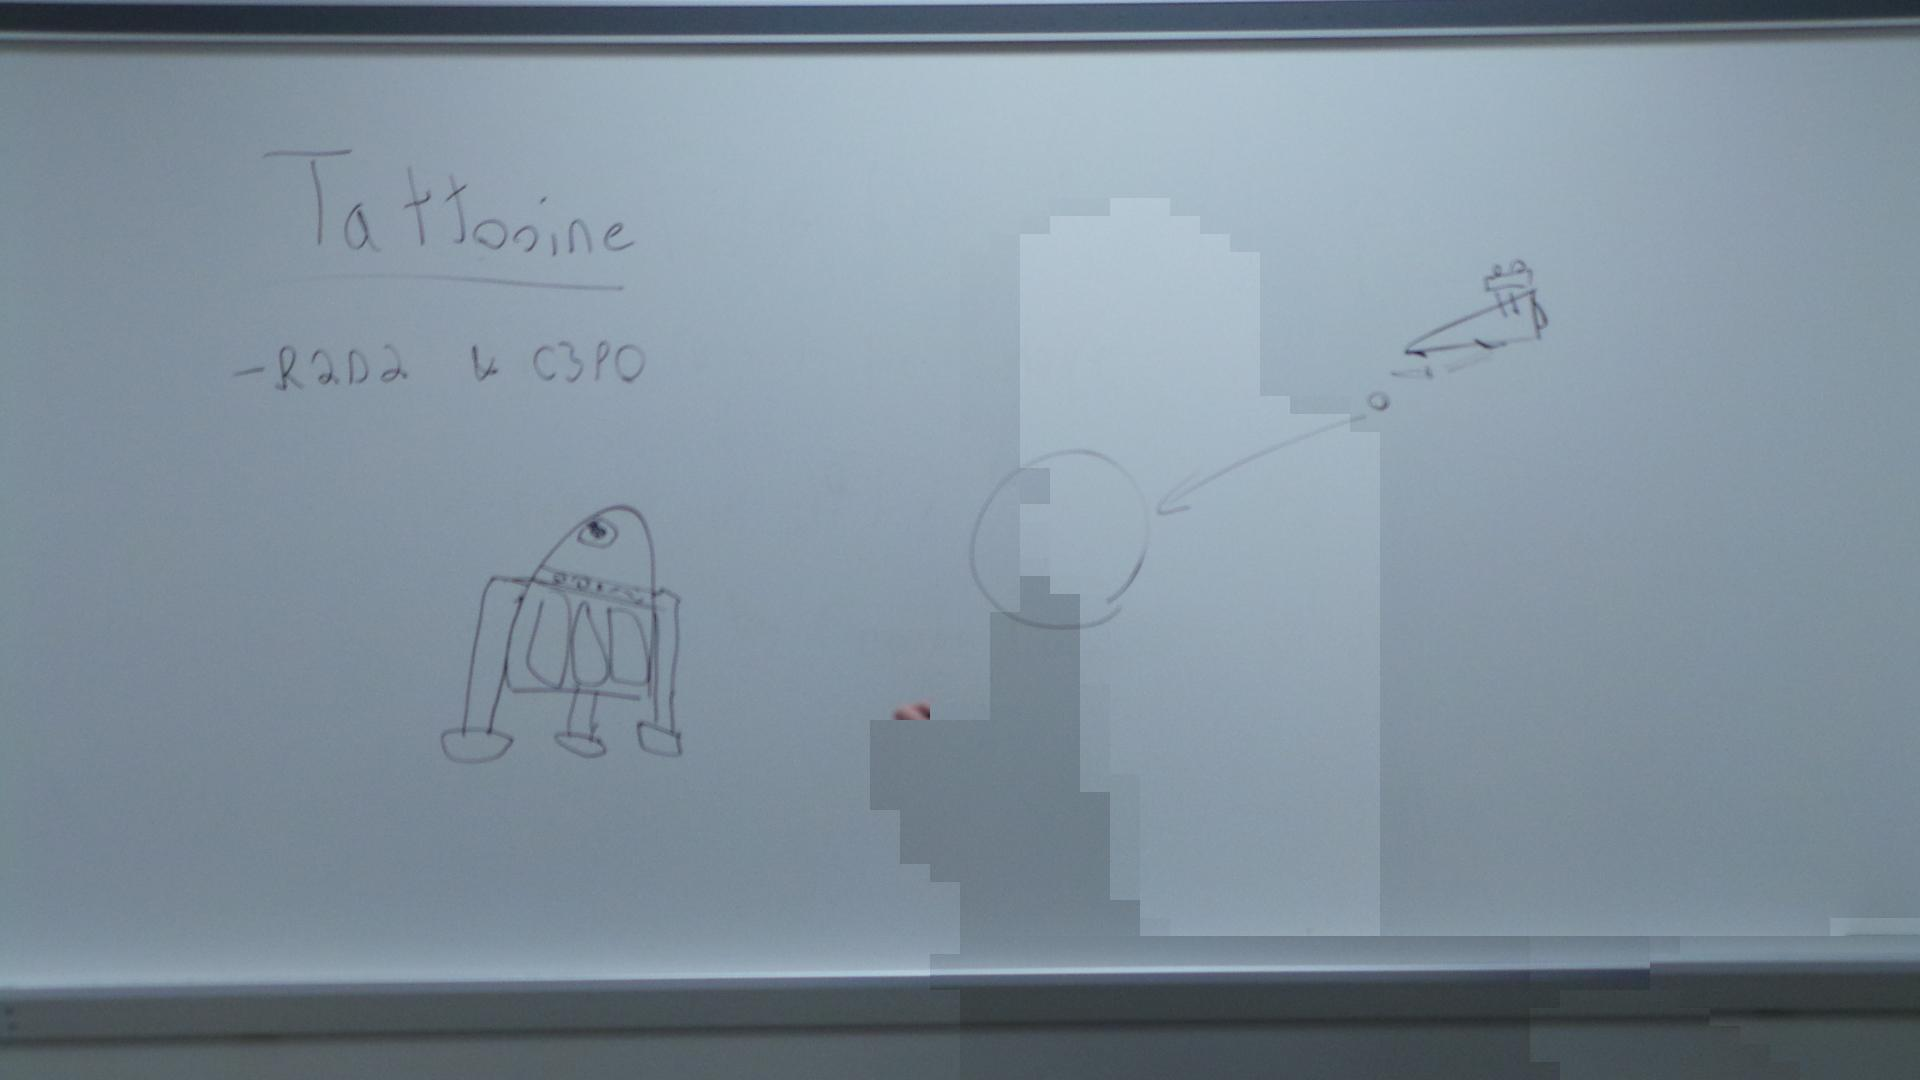 Tattooine
- R2D2 & C3PO